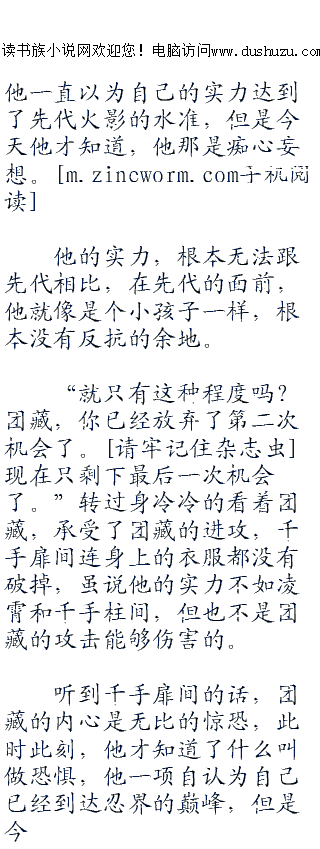 读书族小说网欢迎您！电脑访问www.dushuzu.com
他一直以为自己的实力达到
了先代火影的水准，但是今
天他才知道，他那是痴心妄
想。[m.zincworm.com手机阅
读]
他的实力，根本无法跟
先代相比，在先代的面前，
他就像是个小孩子一样，根
本没有反抗的余地。
“就只有这种程度吗？
团藏，你已经放弃了第二次
机会了。[请牢记住杂志虫]
现在只剩下最后一次机会
了。”转过身冷冷的看着团
藏，承受了团藏的进攻，千
手扉间连身上的衣服都没有
破掉，虽说他的实力不如凌
霄和千手柱间，但也不是团
藏的攻击能够伤害的。
听到千手扉间的话，团
藏的内心是无比的惊恐，此
时此刻，他才知道了什么叫
做恐惧，他一项自认为自己
已经到达忍界的巅峰，但是
今